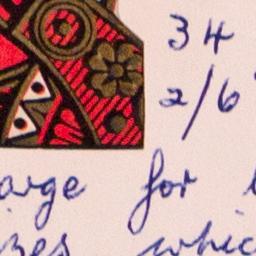 34
2/6
arge for
zes whic